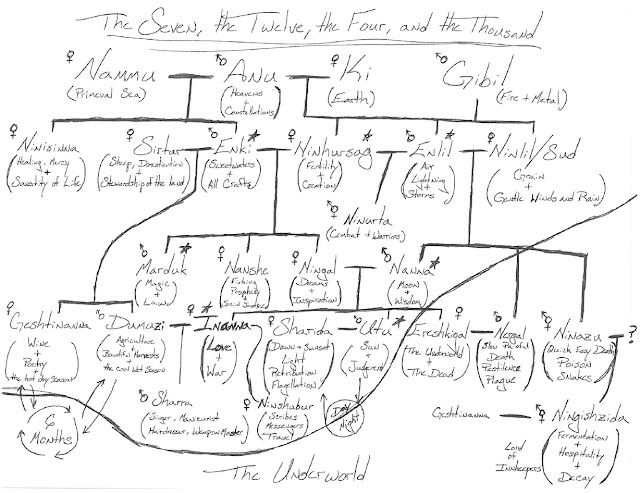 The Seven, the Twelve, the Four, and the Thousand
♀ Nammu
(Primeval Sea)
♂ Anu
(Heavens
+
Constellations)
♀ Ki
(Earth)
♂ Gibil
(Fire + Metal)
♀ Ninisinna
(Healing, Mercy
+
Sanctity of Life)
♀ Sirtar
(Sheep, Domestication
+
Stewardship of the land)
♂ Enki
(Sweetwaters
+
All Crafts)
♀ Ninhursag
(Fertility
+
Creation)
♂ Enlil
(Air
Lightning
+
Storms)
♀ Ninlil/Sud
(Grain
+
Gentle Winds and Rain)
♂ Ninurta
(Combat + Warriors)
♂ Marduk
(Magic
+
Laws)
♀ Nanshe
(Fishing
Prophecy
+
Social Justice)
♀ Ningal
(Dreams
+
Inspiration)
♂ Nanna
(Moon
+
Wisdom)
♀ Geshtinanna
(Wine
+
Poetry
+
the hot dry season)
♂ Dumuzi
(Agriculture
+
Bountiful Harvests
+
the cool wet season)
♀ Inanna
(Love
+
War)
♀ Sharida
(Dawn + Sunset
Light
Retribution
Flagellation)
♂ Utu
(Sun
+
Judgment)
♀ Ereshkigal
(The Underworld
+
The Dead)
♂ Nergal
(Slow Painful
Death
Pestilence
Plague)
♀ Ninazu
(Quick Easy Death
Poison
Snakes)
?
♂ Sharra
(Singer, Manicurist
Hairdresser, Weapon Master)
♀ Ninshubur
(Scribes
Messengers
Travel)
Day
Night
6
Months
Geshtinanna
♂ Ningishzida
(Fermentation
+
Hospitality
+
Decay)
Lord
of
Innkeepers
The Underworld